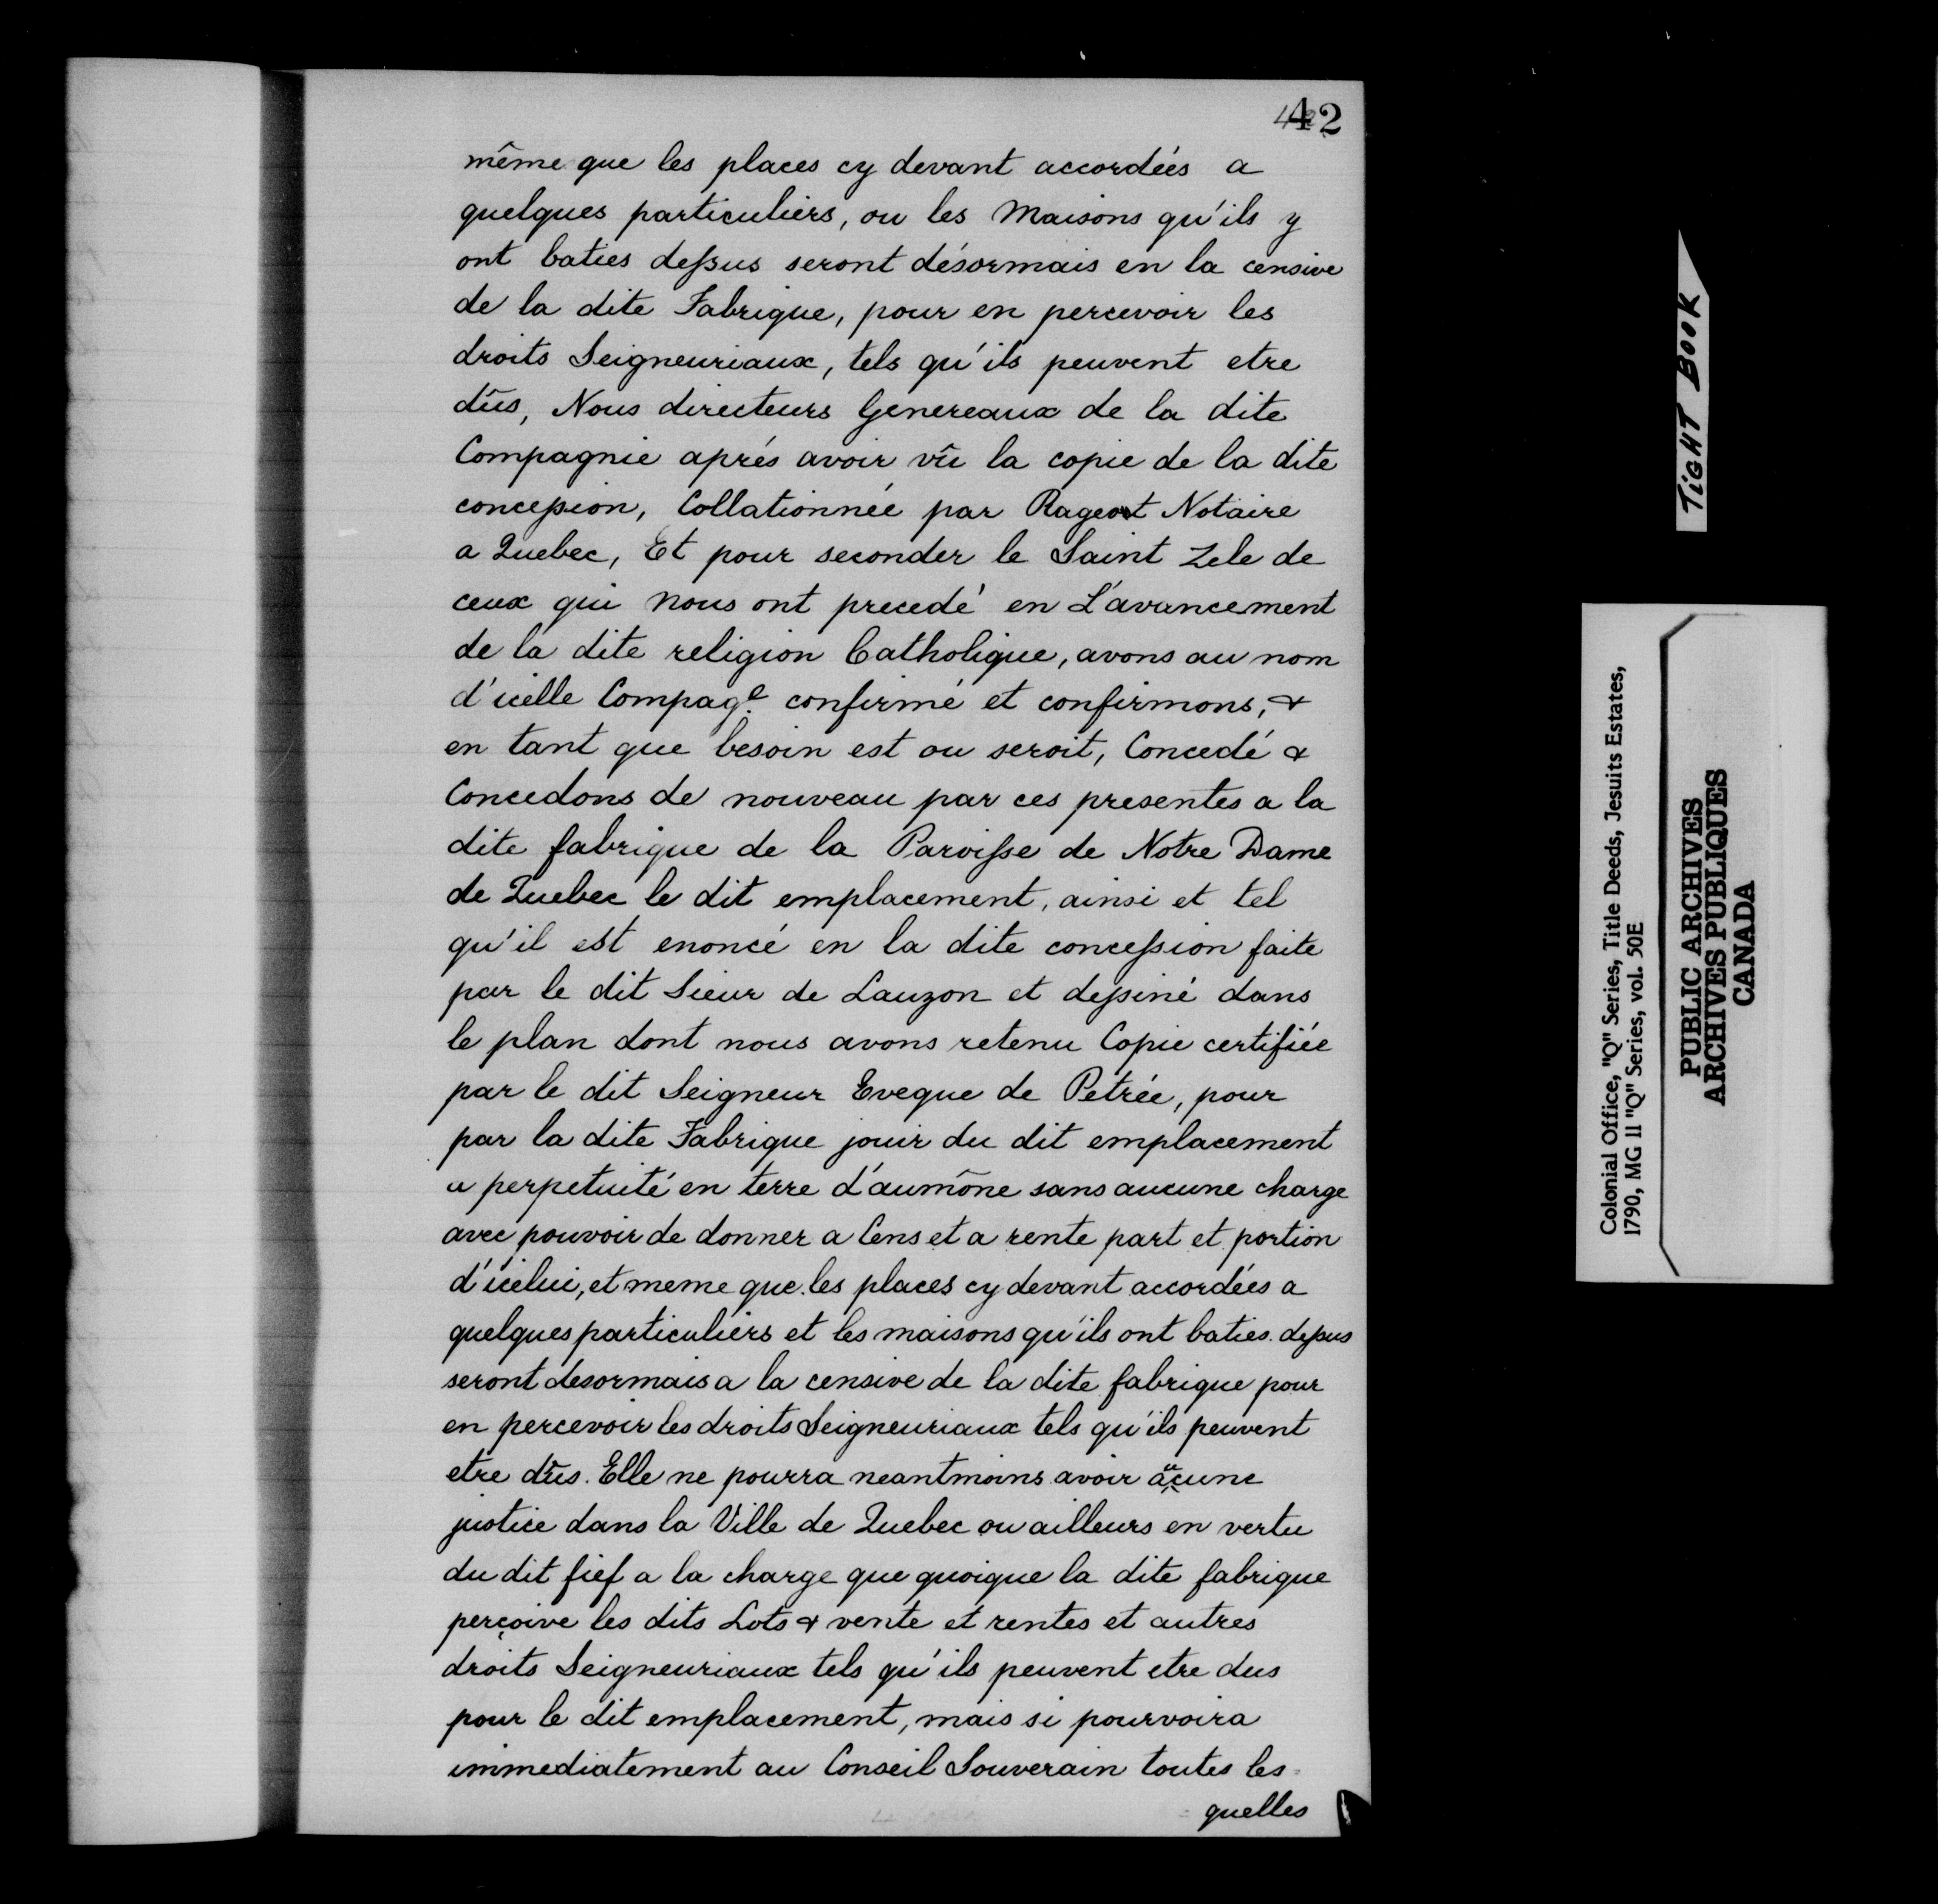 42
même que les places cy devant accordées a
quelques particuliers, ou les Maisons qu'ils y
ont baties deſsus seront désormais en la censive
de la dite Fabrique, pour en percevoir les
droits Seigneuriaux, tels qu'ils peuvent etre
dûs, Nous directeurs Genereaux de la dite
Compagnie aprés avoir vû la copie de la dite
conceſsion, Collationnée par Rageot Notaire
a Quebec, Et pour seconder le Saint Zele de
ceux qui nous ont precedé en L'avancement
de la dite religion Catholique, avons au nom
d'icelle Compagᵉ. confirmé et confirmons, &
en tant que besoin est ou seroit, Concedé &
Concedons de nouveau par ces presentes a la
dite fabrique de la Paroiſse de Notre Dame
de Quebec le dit emplacement, ainsi et tel
qu'il est enoncé en la dite conceſsion faite
par le dit Sieur de Lauzon et deſsiné dans
le plan dont nous avons retenu Copie certifiée
par le dit Seigneur Eveque de Petrée, pour
par la dite Fabrique jouir du dit emplacement
a perpetuité en terre d'aumône sans aucune charge
avec pouvoir de donner a Cens et a rente part et portion
d'icelui, et meme que les places cy devant accordées a
quelques particuliers et les maisons qu'ils ont baties deſsus
seront desormais a la censive de la dite fabrique pour
en percevoir les droits Seigneuriaux tels qu'ils peuvent
etre dûs. Elle ne pourra neantmoins avoir aucune
justice dans la Ville de Quebec ou ailleurs en vertu
du dit fief a la charge que quoique la dite fabrique
perçoive les dits Lots & vente et rentes et autres
droits Seigneuriaux tels qu'ils peuvent etre dus
pour le dit emplacement, mais si pourvoira
immediatement au Conseil Souverain toutes les=
=quelles
TIGHT BOOK
Colonial Office, "Q" Series, Title Deeds, Jesuits Estates,
1790, MG 11 "Q" Series, vol. 50E
PUBLIC ARCHIVES
ARCHIVES PUBLIQUES
CANADA